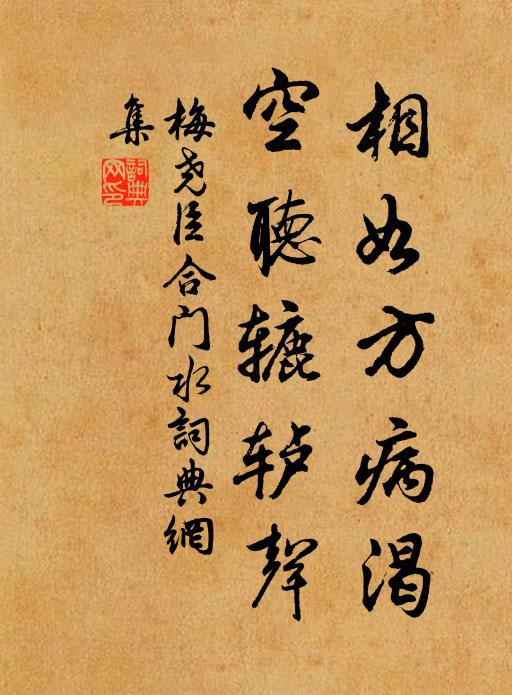 相如方病渴
空聽辘轳聲
梅尧臣合门水詞典網
集
詞典網印